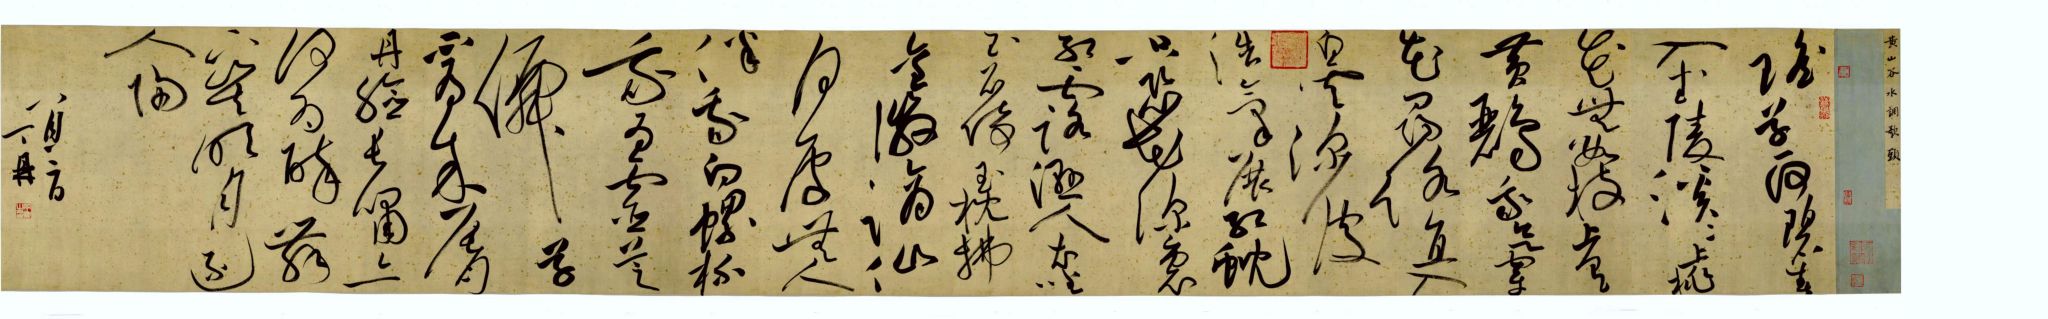 黃山谷水調歌頭
瑤草一何碧春
入武陵溪溪上桃
花無數枝上有
黃鸝我欲穿
花尋路直入
白雲深處
浩氣展虹蜺
只恐花深裏
紅露濕人衣坐
玉石倚玉枕拂
金徽謫仙
何處無人
伴我白螺杯
我為靈芝
僊草
不為朱唇
丹臉長嘯亦
何為醉舞
下山去明月逐
人歸